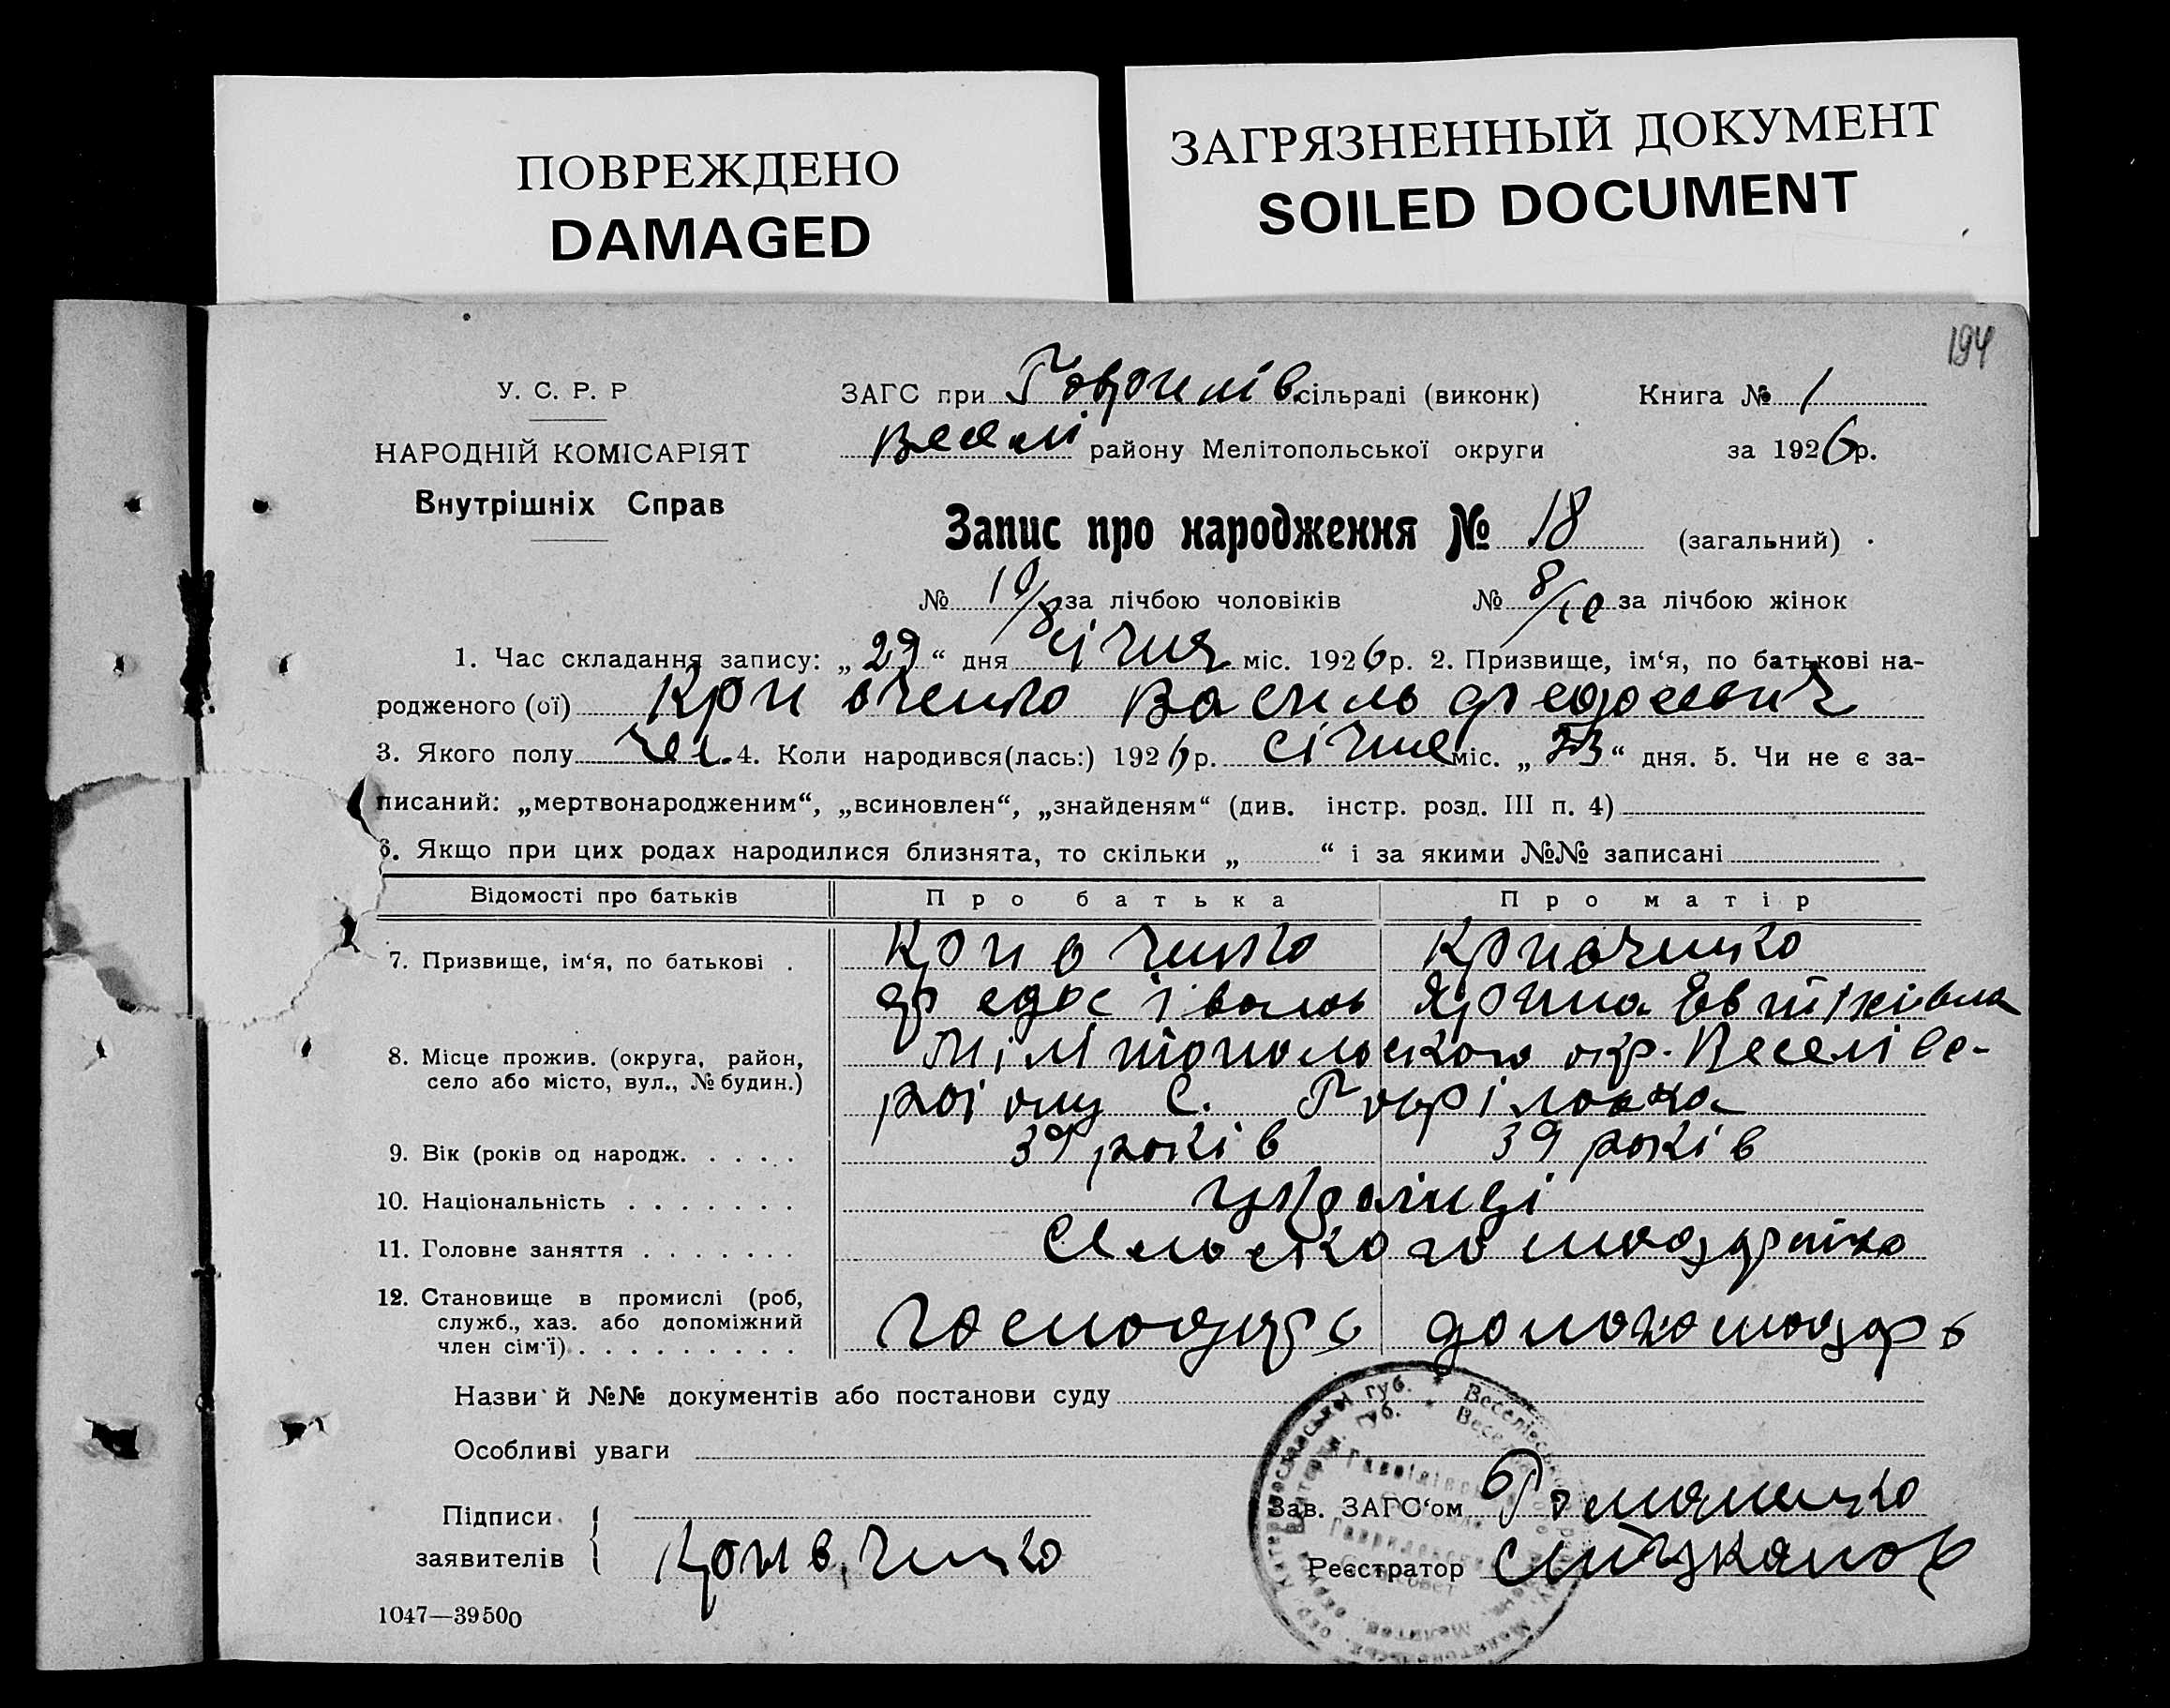 ПОВРЕЖДЕНО
DAMAGED
ЗАГРЯЗНЕННЫЙ ДОКУМЕНТ
SOILED DOCUMENT
194
У. С. Р. Р
НАРОДНІЙ КОМІСАРІЯТ
Внутрішніх Справ
ЗАГС при Гаврилів сільраді (виконк)
Веселі району Мелітопольської округи
Книга № 1
за 1926р.
Запис про народження № 18 (загальний)
№ 10/8 за лічбою чоловіків № 8/10 за лічбою жінок
1. Час складання запису: „29“ дня січня міс. 1926р. 2. Призвище, ім‘я, по батькові на-
родженого (ої) Кривченко Василь Федосевич
3. Якого полу чол. 4. Коли народився(лась:) 1926р. січня міс. „ “ дня. 5. Чи не є за-
писаний: „мертвонародженим“, „всиновлен“, „знайденям“ (див. інстр. розд. III п. 4)
6. Якщо при цих родах народилися близнята, то скільки „ “ і за якими №№ записані
Відомості про батьків Про батька Про матір
7. Призвище, ім‘я, по батькові . Кривченко Кривченко
Федос Іванов Ярина
8. Місце прожив. (округа, район, село або місто, вул., № будин.) Мілітопольского окр. Веселів
раіону С. Гавріловка
9. Вік (років од народж. . . . . 39 років 39 років
10. Національність . . . . . . . українці
11. Головне заняття . . . . . . . Сельского
12. Становище в промислі (роб, служб., хаз. або допоміжний член сім‘ї) . . . . . . . . . господарь
Назви й №№ документів або постанови суду
Особливі уваги
Підписи заявителів { Кривченко
Зав. ЗАГС‘ом Романенко
Реєстратор
1047—39500